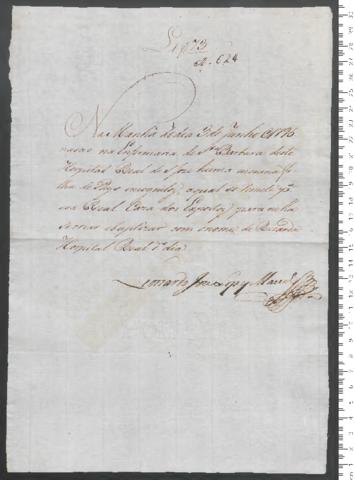 L 73
N. 624
Na Manhã de dia 3 de Junho de 1795
nasceo na Enfermaria de Sta Barbara deste
Hospital Real de S. Joze huma menina fi
lha de Pays incognitos, a qual se remete pa
a Real Caza dos Expostos, para nella
se criar e baptizar com o nome de
Hospital Real Va dia
Leonardo Joze